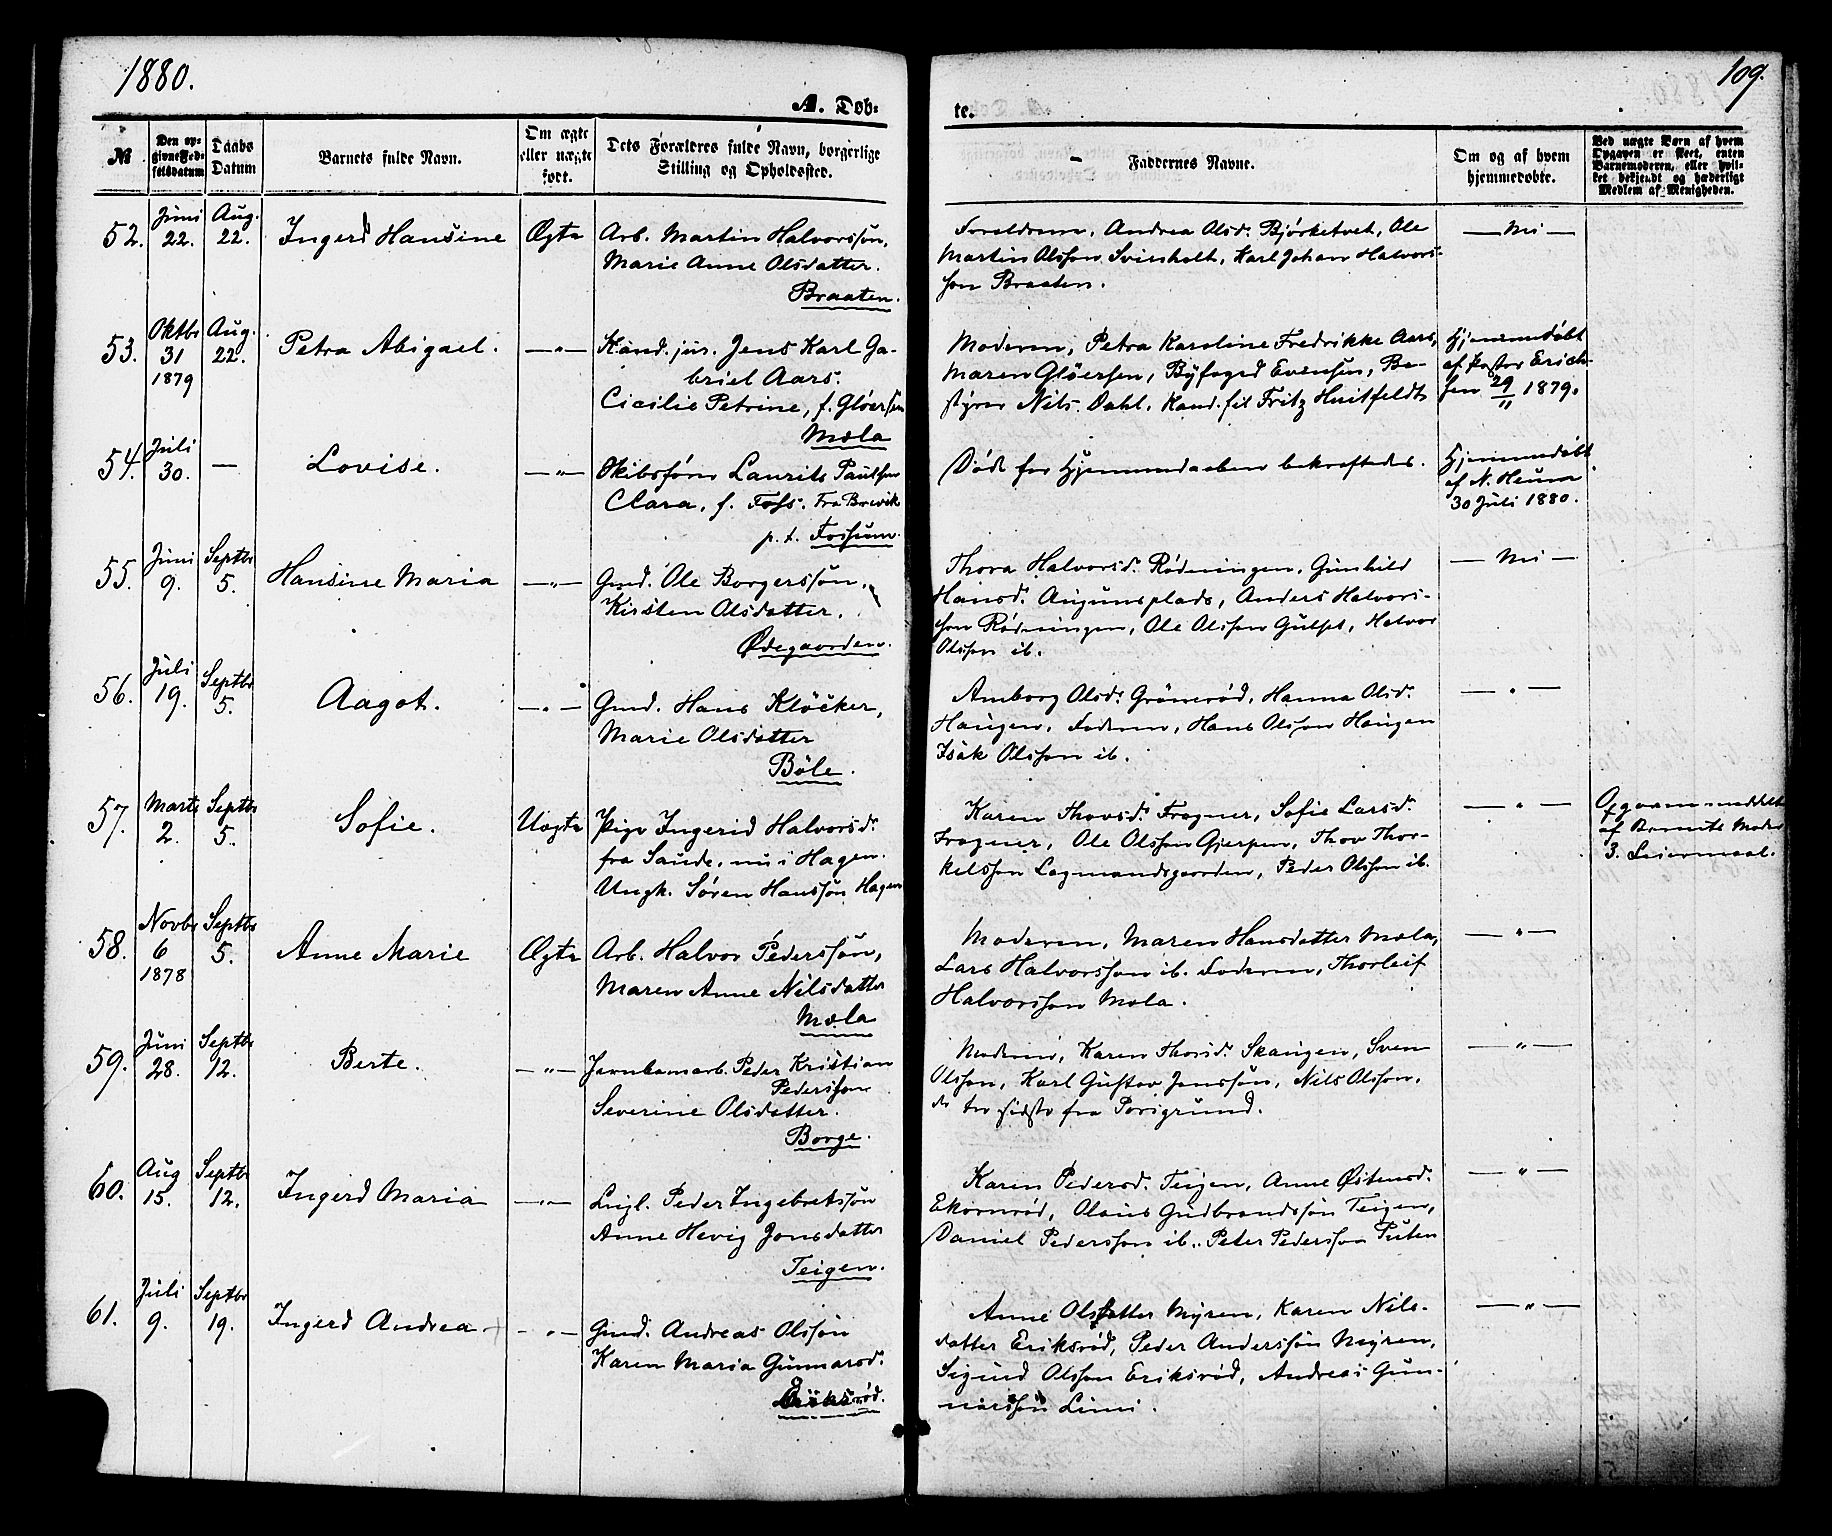 1880.
109.
A. Døb-
te.
№
Den op-
givne Fød-
selsdatum
Daabs
Datum
Barnets fulde Navn.
Om ægte
eller uægte
født.
Dets Forældres fulde Navn, borgerlige
Stilling og Opholdssted.
Faddernes Navne.
Om og af hvem
hjemmedøbte.
Ved uægte Børn af hvem
Opgaven er skeet, enten
Barnemoderen, eller hvil-
ket bekjendt og hæderligt
Medlem af Menigheden.
52. Juni 22. Aug. 22. Ingerd Hansine Ægte
Arb. Martin Halvorssøn,
Marie Anne Olsdatter.
Braaten.
Forældrene, Andrea Olsd. Bjørketvet, Ole
Martin Olssøn Svinholt, Karl Johan Halvors-
søn Braaten.
— Nei —
53. Oktbr 31 1879 Aug. 22. Petra Abigael. — " —
Kand. jur. Jens Karl Ga-
briel Aars.
Cicilie Petrine, f. Gløersen
Mæla
Moderen, Petra Karoline Fredrikke Aars,
Maren Gløersen, Byfoged Evensen, Be-
styrer Nils Dahl, Kand. fil Fritz Huitfeldt
Hjemmedøbt
af Pastor Erich-
sen 29/11 1879.
54. Juli 30. — Lovise. — " —
Skibsfører Laurits Paulsen
Clara, f. Foss. Fra Brevik
p. t. Fossum.
Døde før Hjemmedaaben bekræftedes.
Hjemmedøbt
af N. Heura
30 Juli 1880.
55. Juni 9. Septbr 5. Hansine Maria — " —
Gmd. Ole Borgerssøn,
Kirsten Olsdatter,
Ødegaarden.
Thora Halvorsd. Rødningen, Gunhild
Hansd. Augunsplads, Anders Halvors-
søn Rødningen, Ole Olssøn Gulset, Halvor
Olssøn ib.
— Nei —
56. Juli 19. Septbr 5. Aagot. — " —
Gmd. Hans Kløcker,
Marie Olsdatter
Bøle.
Amborg Olsd. Grønerød, Hanna Olsd.
Haugen, Faderen, Hans Olssøn Haugen
Isak Olssøn ib.
— " —
57. Marts 2. Septbr 5. Sofie. Uægte
Pige Ingerid Halvorsd.
fra Saude, nu i Hagen.
Ungk. Søren Hanssøn Hagen
Karen Thovsd. Frogner, Sofie Larsd.
Frogner, Ole Olssøn Gjerpen, Thov Thor-
kelssøn Lagmandsgaarden, Peder Olssøn ib.
— " —
Opgaven meddelt
af Barnets Moder
3. Leiermaal.
58. Novbr 6 1878 Septbr 5. Anne Marie Ægte
Arb. Halvor Pederssøn,
Maren Anne Nilsdatter
Mæla
Moderen, Maren Hansdatter Mæla,
Lars Halvorssøn ib. Faderen, Thorleif
Halvorssøn Mæla.
— " —
59. Juni 28. Septbr 12. Berte. — " —
Jernbanearb. Peder Kristian
Pederssøn
Severine Olsdatter.
Borge.
Moderen, Karen Thorsd. Skaugen, Sven
Olssøn, Karl Gustav Jonssøn, Nils Olssøn,
de tre sidste fra Porsgrund.
— " —
60. Aug 15. Septbr 12. Ingerd Maria — " —
Leigl. Peder Ingebretssøn
Anne Hevig Jonsdatter
Teigen.
Karen Pedersd. Teigen, Anne Østensd.
Ekornrød, Olaus Gudbrandssøn Teigen,
Daniel Pederssøn ib., Peter Pederssøn Puten
— " —
61. Juli 9. Septbr 19. Ingerd Andrea — " —
Gmd. Andreas Olssøn
Karen Maria Gunnarsd.
Eriksrød.
Anne Olsdatter Myren, Karen Nils-
datter Eriksrød, Peder Anderssøn Myren,
Sigurd Olssøn Eriksrød, Andreas Gun-
narssøn Limi.
— " —